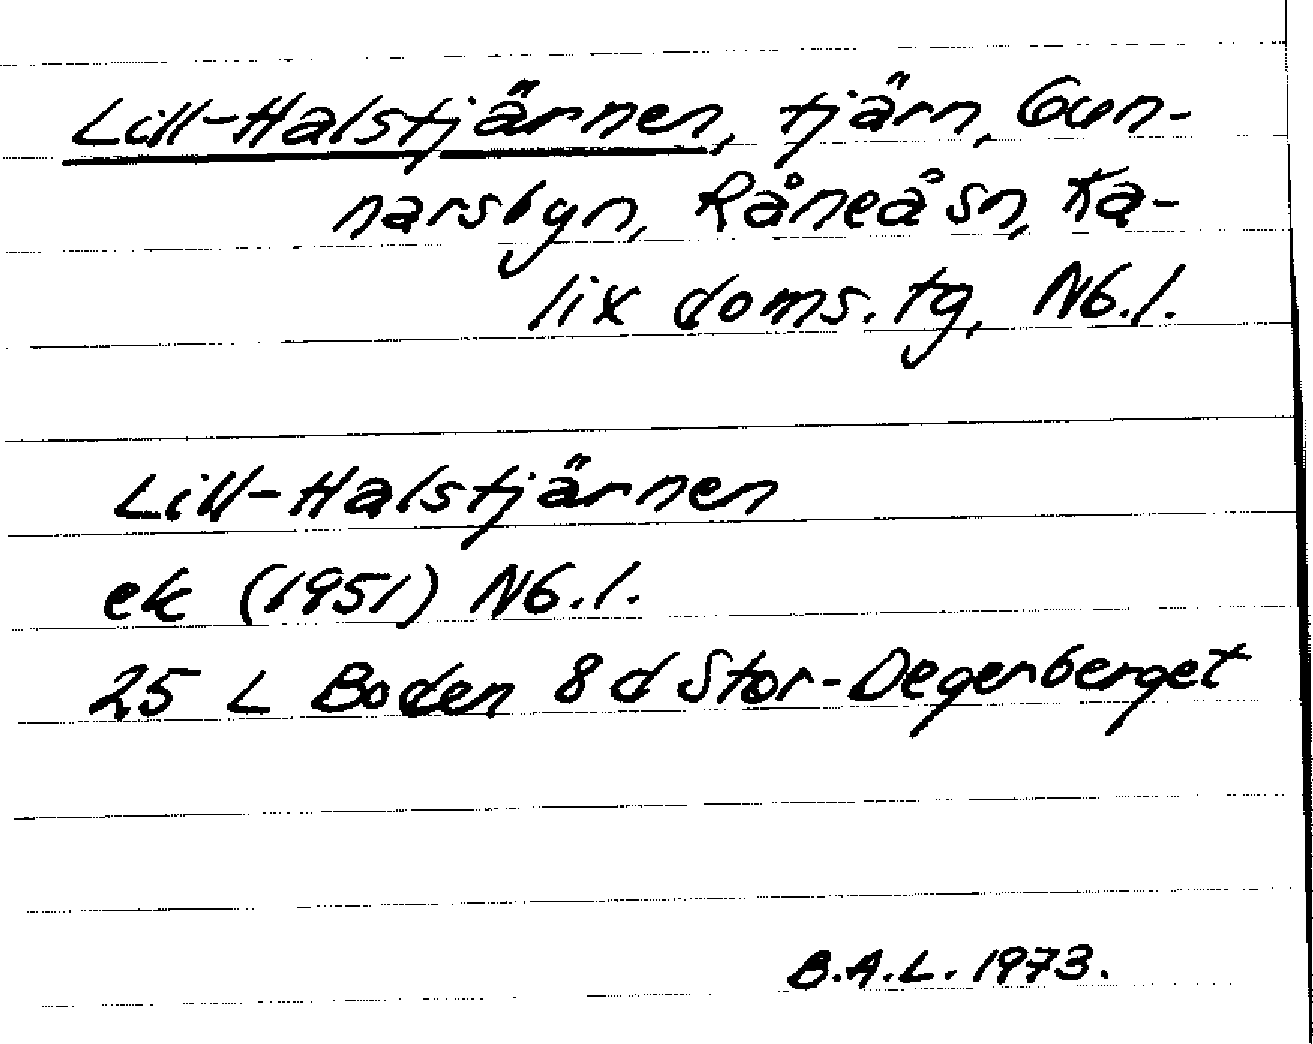 Lill-Halstjärnen, tjärn, Gun-
narsbyn, Råneå sn, Ka-
lix doms.tg, Nb.l.
Lill-Halstjärnen
ek (1951) Nb.l.
25 L Boden 8 d Stor-Degerberget
B.A.L. 1973.